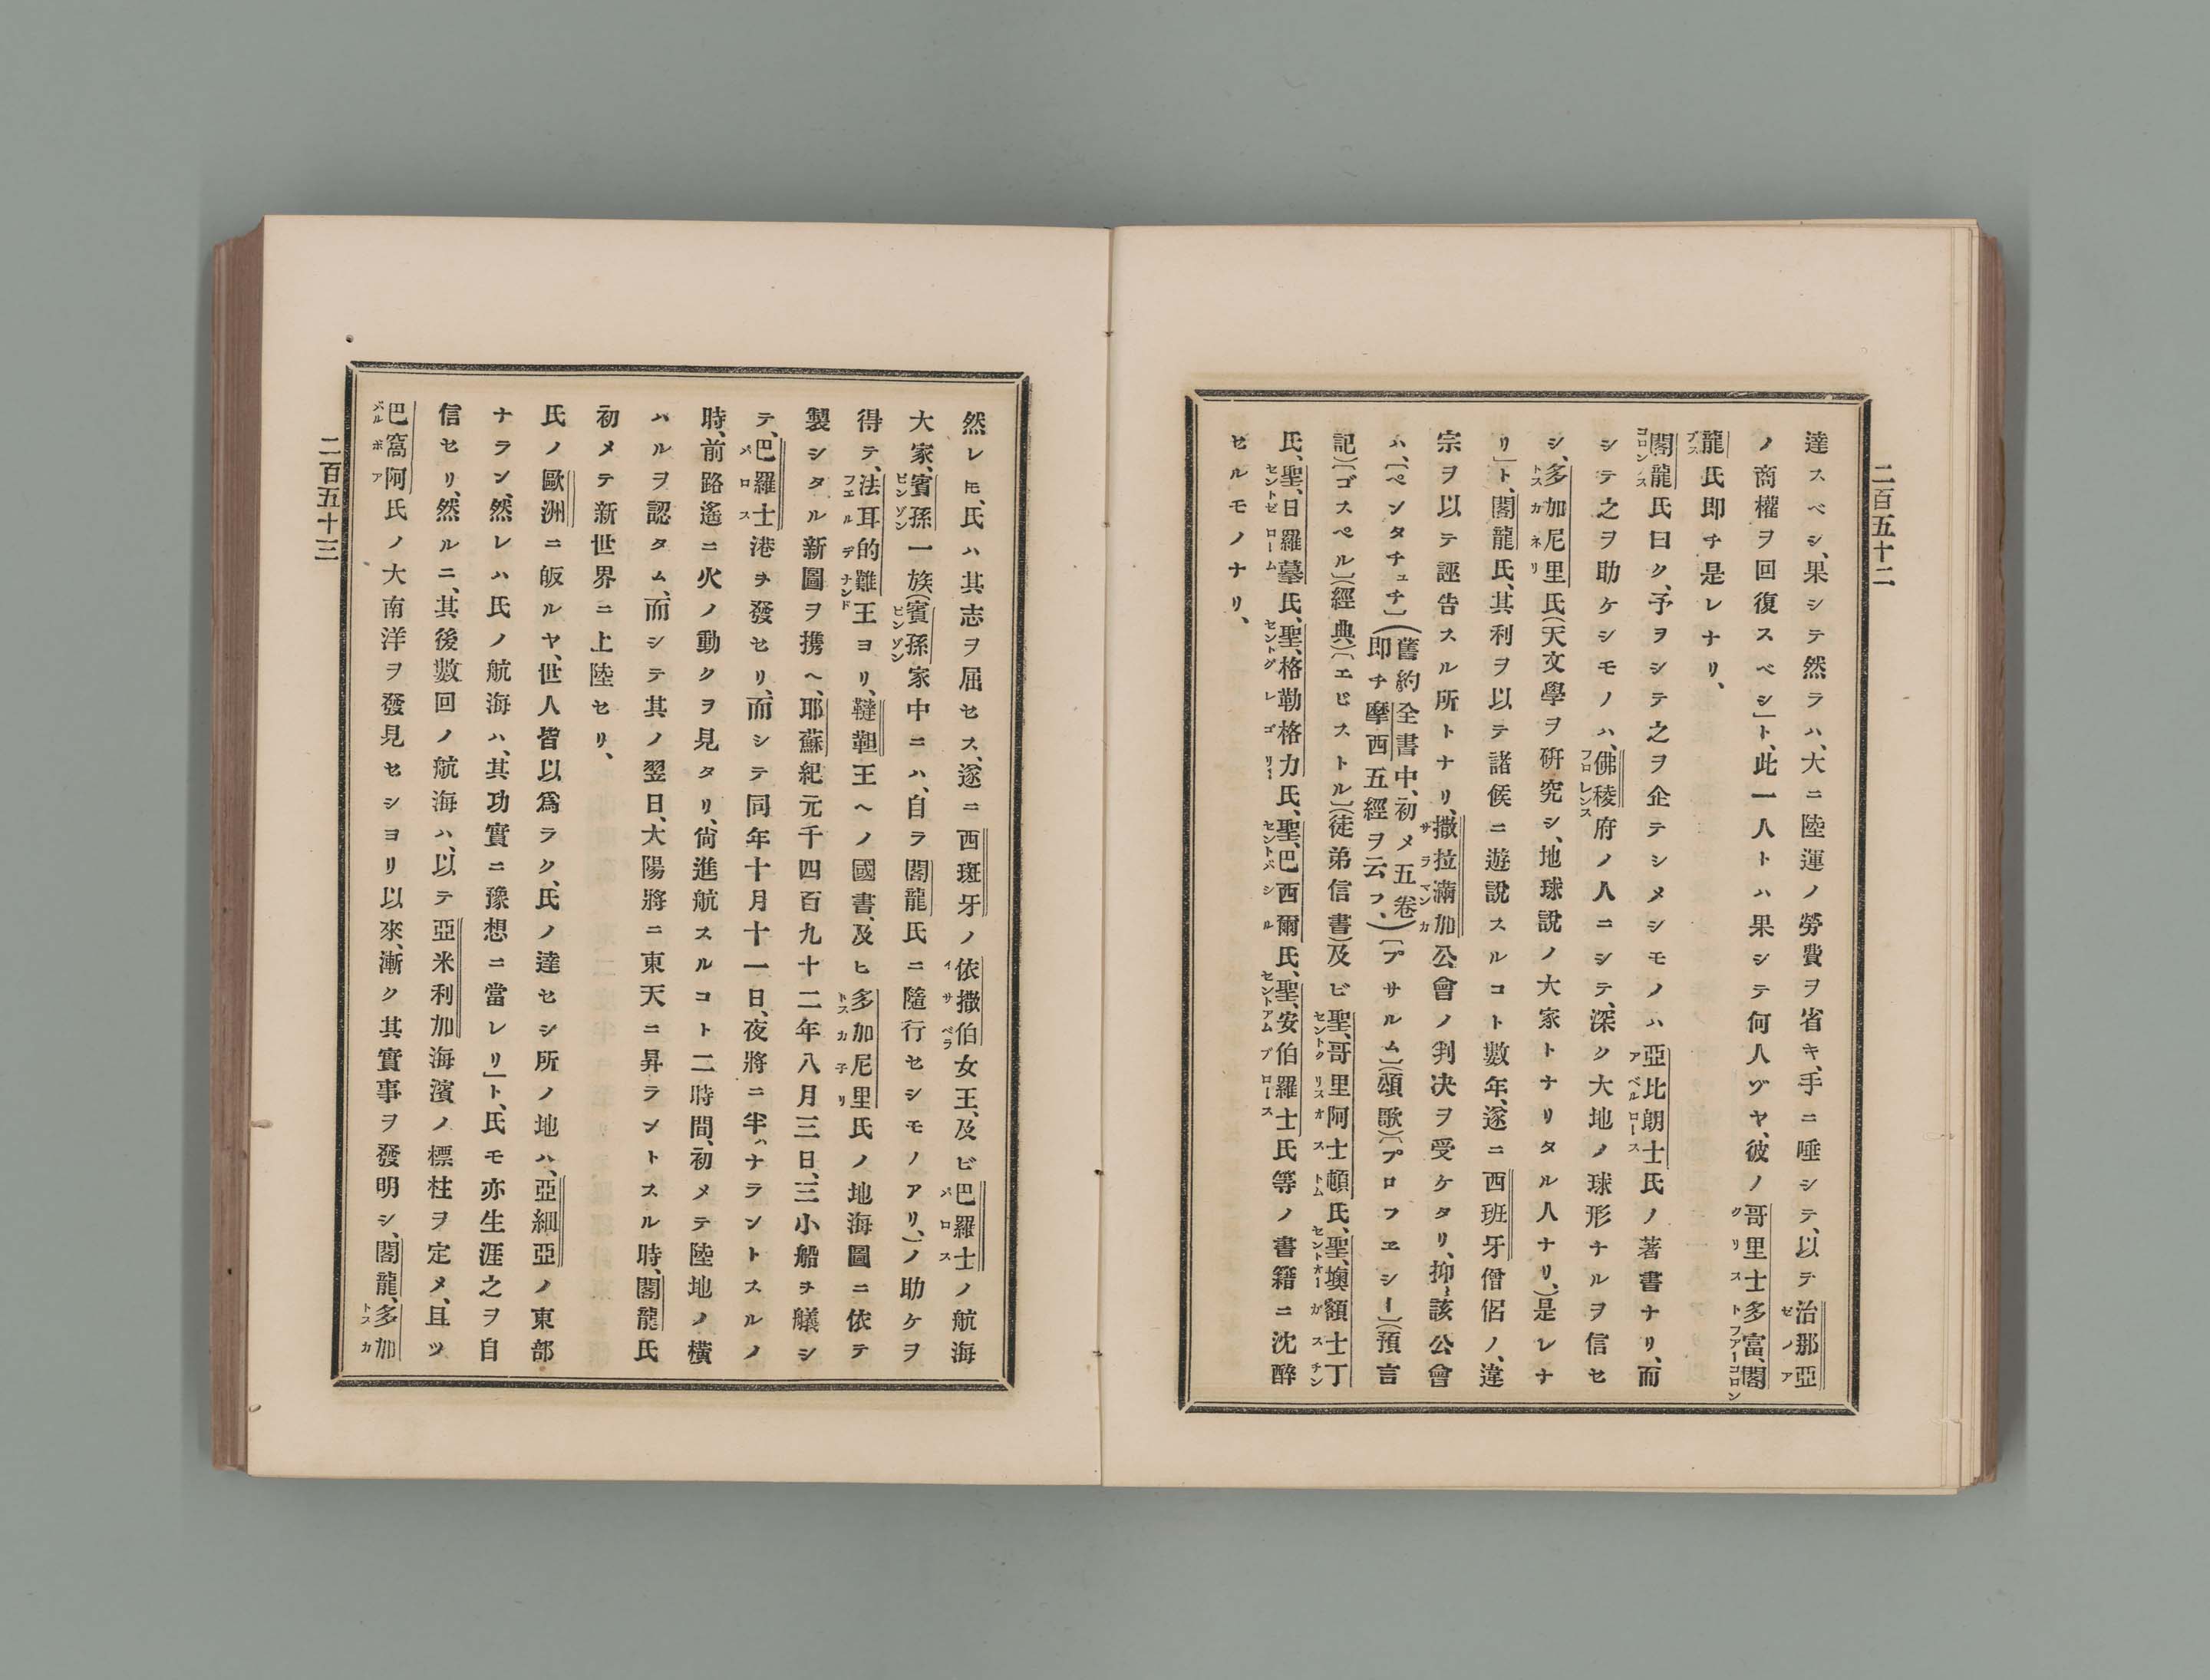 二百五十二
達スベシ、果シテ然ラハ、大ニ陸運ノ勞費ヲ省キ、手ニ唾シテ、以テ治那亞
ゼノア
ノ商權ヲ回復スベシ」ト、此一人トハ果シテ何人ゾヤ、彼ノ哥里士多富、閣
クリストファーコロン
龍氏即チ是レナリ、
ブス
閣龍氏曰ク、予ヲシテ之ヲ企テシメシモノハ亞比朗士氏ノ著書ナリ、而
コロンブス
アベルロース
シテ之ヲ助ケシモノハ、佛稜府ノ人ニシテ、深ク大地ノ球形ナルヲ信セ
フロレンス
シ、多加尼里氏(天文學ヲ研究シ、地球說ノ大家トナリタル人ナリ、)是レナ
トスカネリ
リ」ト、閣龍氏、其利ヲ以テ諸侯ニ遊說スルコト數年、遂ニ西班牙僧侶ノ、違
宗ヲ以テ誣告スル所トナリ、撒拉滿加公會ノ判决ヲ受ケタリ、抑、該公會
サラマンカ
ハ、〔ペンタチュチ〕(舊約全書中、初メ五卷)
即チ摩西五經ヲ云フ、)〔プサルム〕(頌歌)〔プロフヱシー〕(預言
記)〔ゴスペル〕(經典)〔エピストル〕(徒弟信書)及ビ聖、哥里阿士頓氏、聖、墺額士丁
セントクリスオストム
セントオーガスチン
氏、聖、日羅摹氏、聖、格勒格力氏、聖、巴西爾氏、聖、安伯羅士氏等ノ書籍ニ沈醉
セントゼローム
セントグレゴリー
セントバシル
セントアムブロース
セルモノナリ、
然レ𪜈、氏ハ其志ヲ屈セス、遂ニ西班牙ノ依撒伯女王、及ビ巴羅士ノ航海
イサベラ
パロス
大家、賓孫一族(賓孫家中ニハ、自ラ閣龍氏ニ隨行セシモノアリ、)ノ助ケヲ
ピンゾン
ピンゾン
得テ、法耳的難王ヨリ、韃靼王ヘノ國書、及ヒ多加尼里氏ノ地海圖ニ依テ
フエルデナンド
トスカ子リ
製シタル新圖ヲ携ヘ、耶蘇紀元千四百九十二年八月三日、三小船ヲ艤シ
テ、巴羅士港ヲ發セリ、而シテ同年十月十一日、夜將ニ半ハナラントスルノ
パロス
時、前路遙ニ火ノ動クヲ見タリ、尙進航スルコト二時間、初メテ陸地ノ橫
ハルヲ認タム、而シテ其ノ翌日、大陽將ニ東天ニ昇ラントスル時、閣龍氏
初メテ新世界ニ上陸セリ、
氏ノ歐洲ニ皈ルヤ、世人皆以爲ラク、氏ノ達セシ所ノ地ハ、亞細亞ノ東部
ナラン、然レハ氏ノ航海ハ、其功實ニ豫想ニ當レリ」ト、氏モ亦生涯之ヲ自
信セリ、然ルニ、其後數回ノ航海ハ、以テ亞米利加海濱ノ標柱ヲ定メ、且ツ
巴窩阿氏ノ大南洋ヲ發見セシヨリ以來、漸ク其實事ヲ發明シ、閣龍、多加
バルボア
トスカ
二百五十三